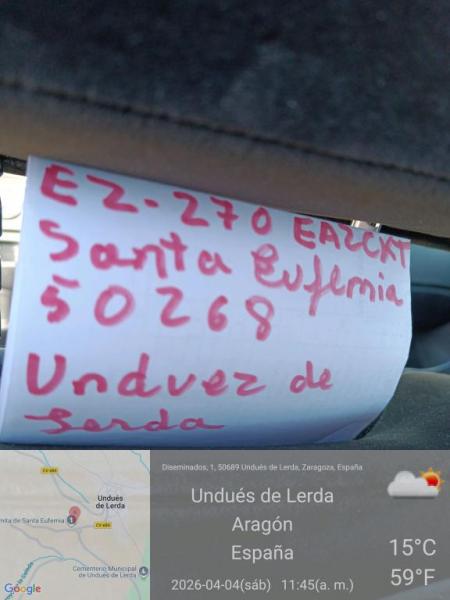 EZ-270 EA2CXT
Santa Eufemia
50268
Undvez de
Lerda
CV-684
Undués
de Lerda
mita de Santa Eufemia
CV-684
Cementerio Municipal
de Undués de Lerda
Google
Diseminados, 1, 50689 Undués de Lerda, Zaragoza, España
Undués de Lerda
Aragón
España
2026-04-04(sáb) 11:45(a. m.)
15°C
59°F